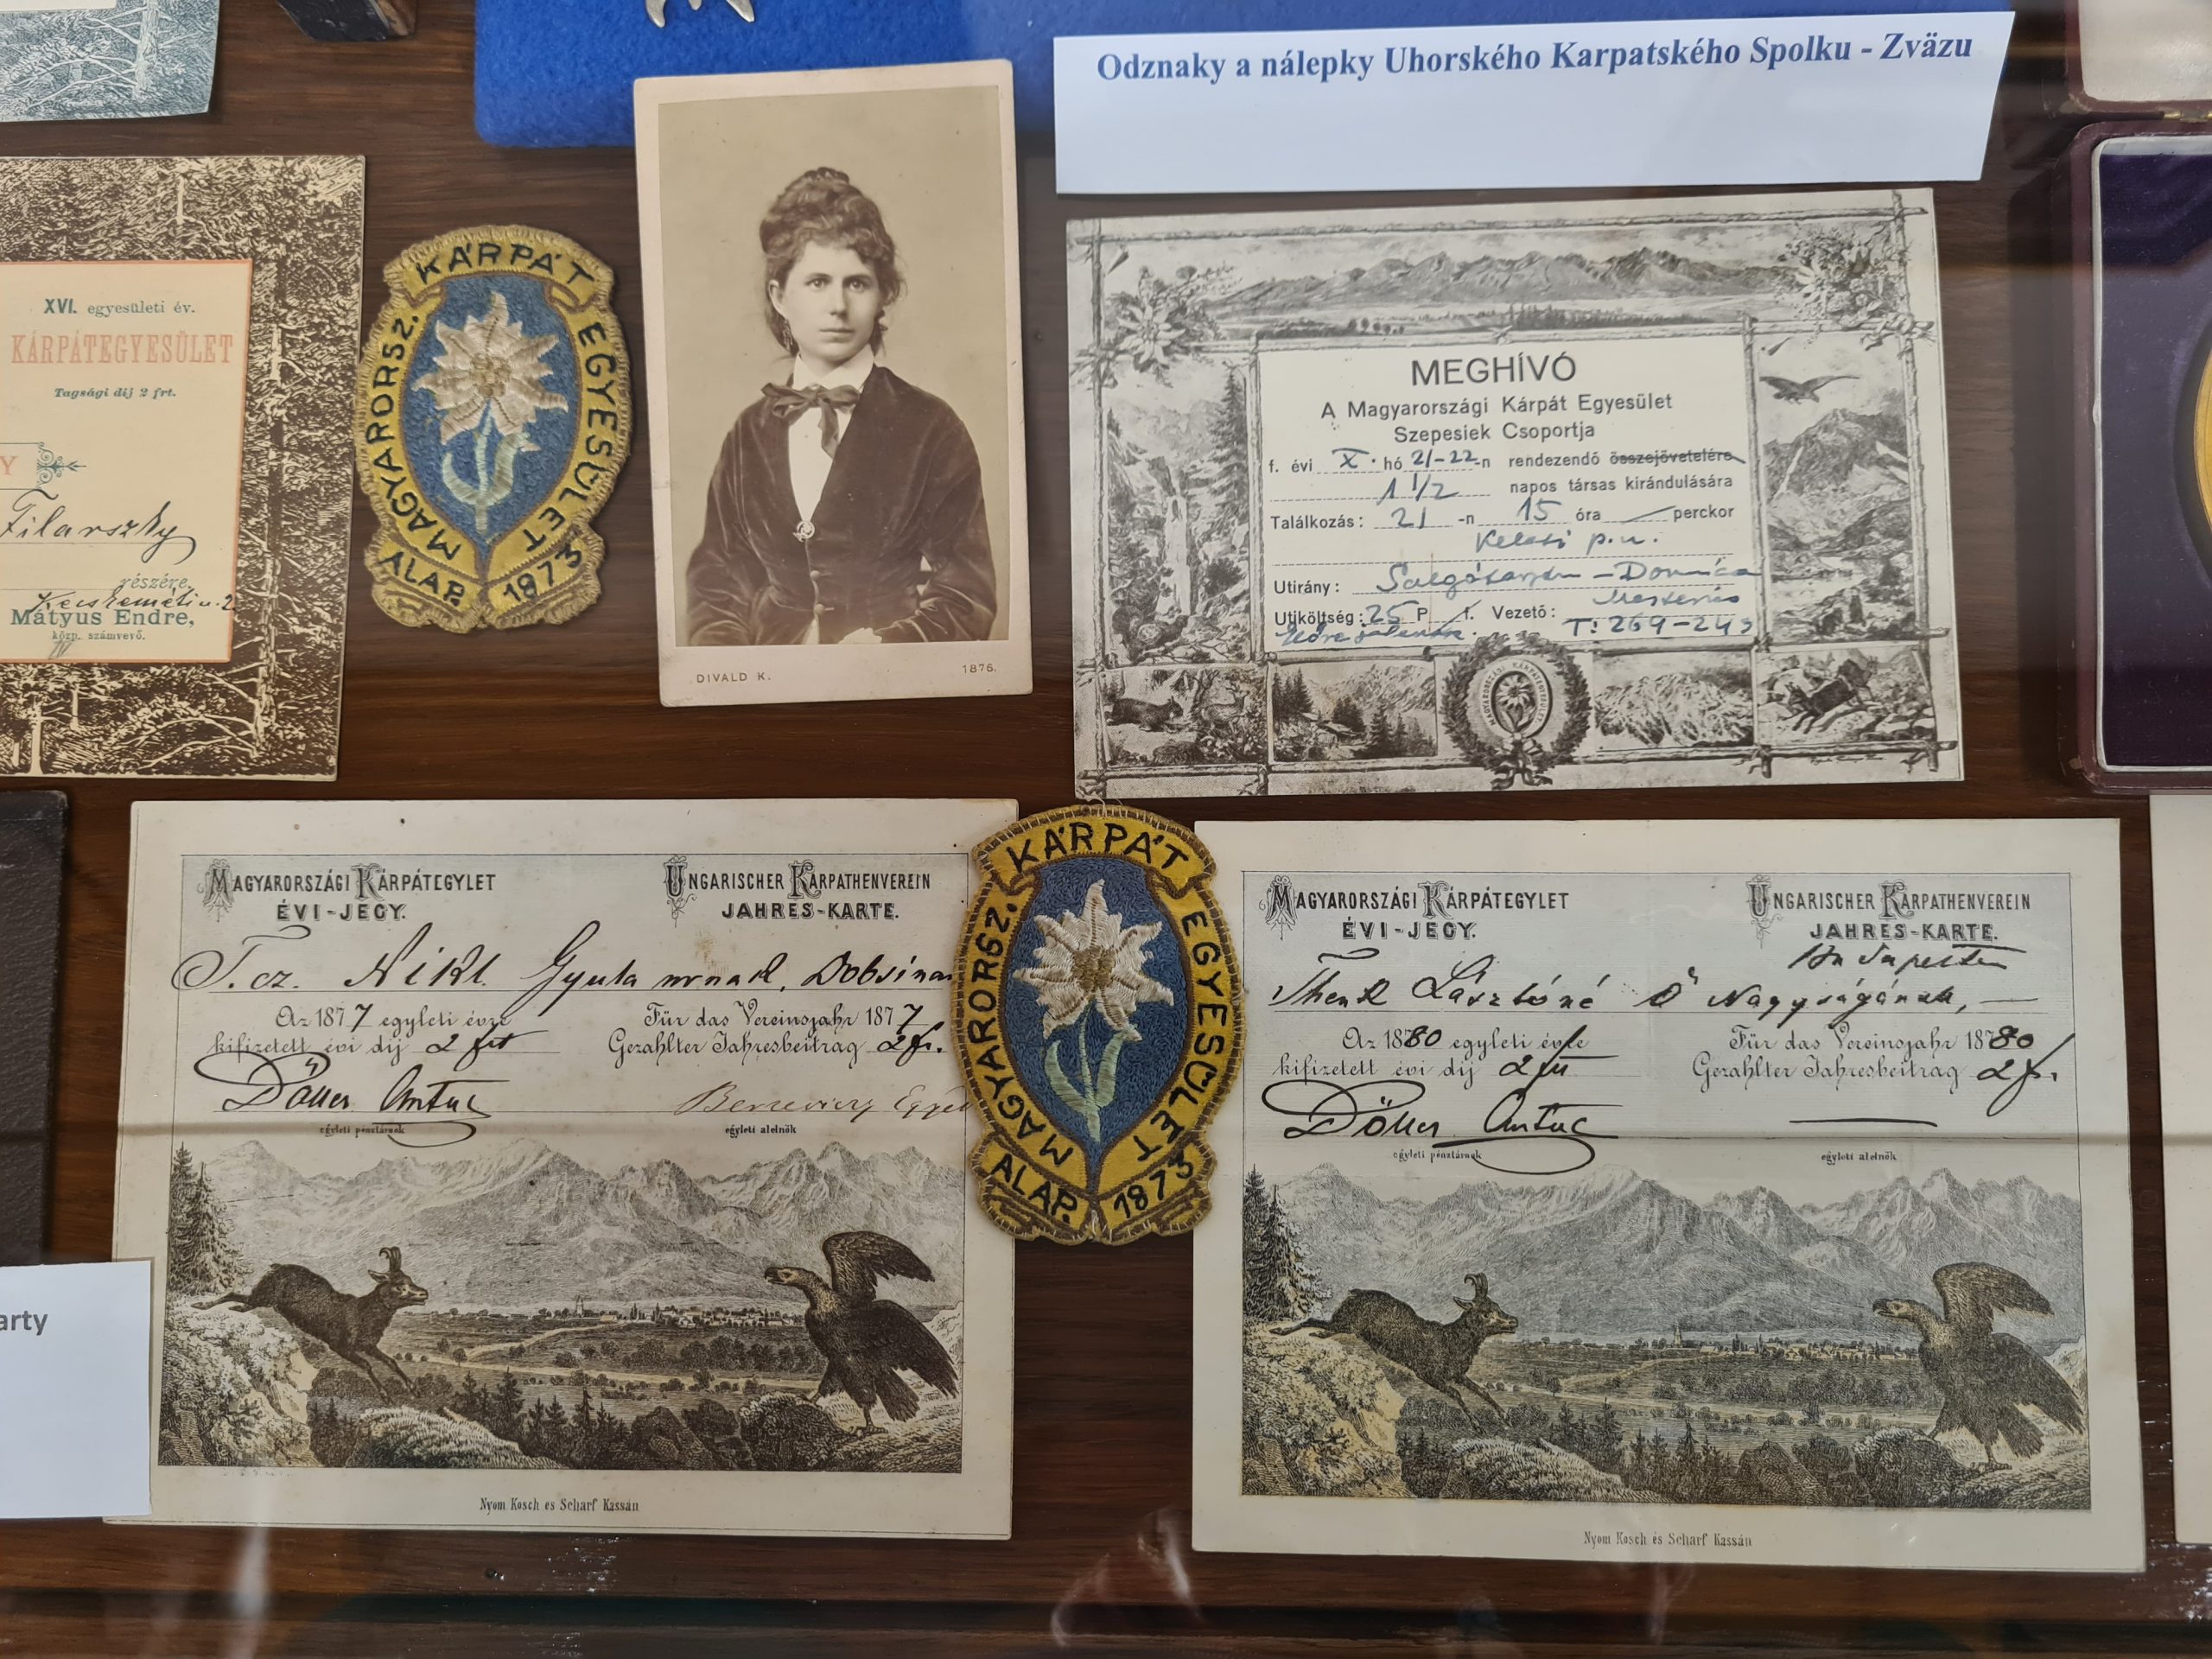 Odznaky a nálepky Uhorského Karpatského Spolku - Zväzu
XVI. egyesületi év.
KÁRPÁTEGYESÜLET
Tagsági díj 2 frt.
Y
Filarszky
részére
Kecskeméti u. 2
Mátyus Endre,
közp. számvevő.
MAGYARORSZ. KÁRPÁT EGYESÜLET
ALAP. 1873
DIVALD K. 1876.
MEGHÍVÓ
A Magyarországi Kárpát Egyesület
Szepesiek Csoportja
f. évi X. hó 21-22-n rendezendő összejövetelére
1 1/2 napos társas kirándulására
Találkozás: 21 -n 15 óra perckor
Keleti p.u.
Utirány: Salgótarján - Dornica
Utiköltség: 25 P f. Vezető:
T: 269-243
MAGYARORSZÁGI KÁRPÁTEGYLET
ÉVI-JEGY.
UNGARISCHER KARPATHENVEREIN
JAHRES-KARTE.
T. cz. Nikl Gyula urnak, Dobsinan
Az 1877 egyleti évre
kifizetett évi díj 2 frt
Für das Vereinsjahr 1877
Gezahlter Jahresbeitrag 2 f.
Döller Antal
egyleti pénztárnok
Berzeviczy Egyed
egyleti alelnök
Nyom Kosch és Scharf Kassán
MAGYARORSZ. KÁRPÁT EGYESÜLET
ALAP. 1873
MAGYARORSZÁGI KÁRPÁTEGYLET
ÉVI-JEGY.
UNGARISCHER KARPATHENVEREIN
JAHRES-KARTE.
Budapesten
Thenk Lászlóné Ő Nagyságának,
Az 1880 egyleti évre
kifizetett évi díj 2 frt
Für das Vereinsjahr 1880
Gezahlter Jahresbeitrag 2 f.
Döller Antal
egyleti pénztárnok
egyleti alelnök
Nyom Kosch és Scharf Kassán
arty